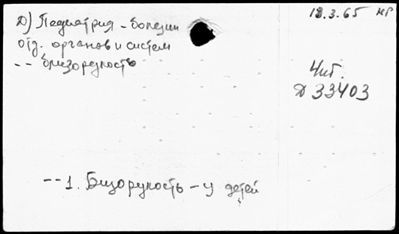 Д) Педиатрия - болезни
18.3.65 кр
отд. органов и систем
-- близорукость
Чит.
Д 33403
-- 1. Близорукость - у детей